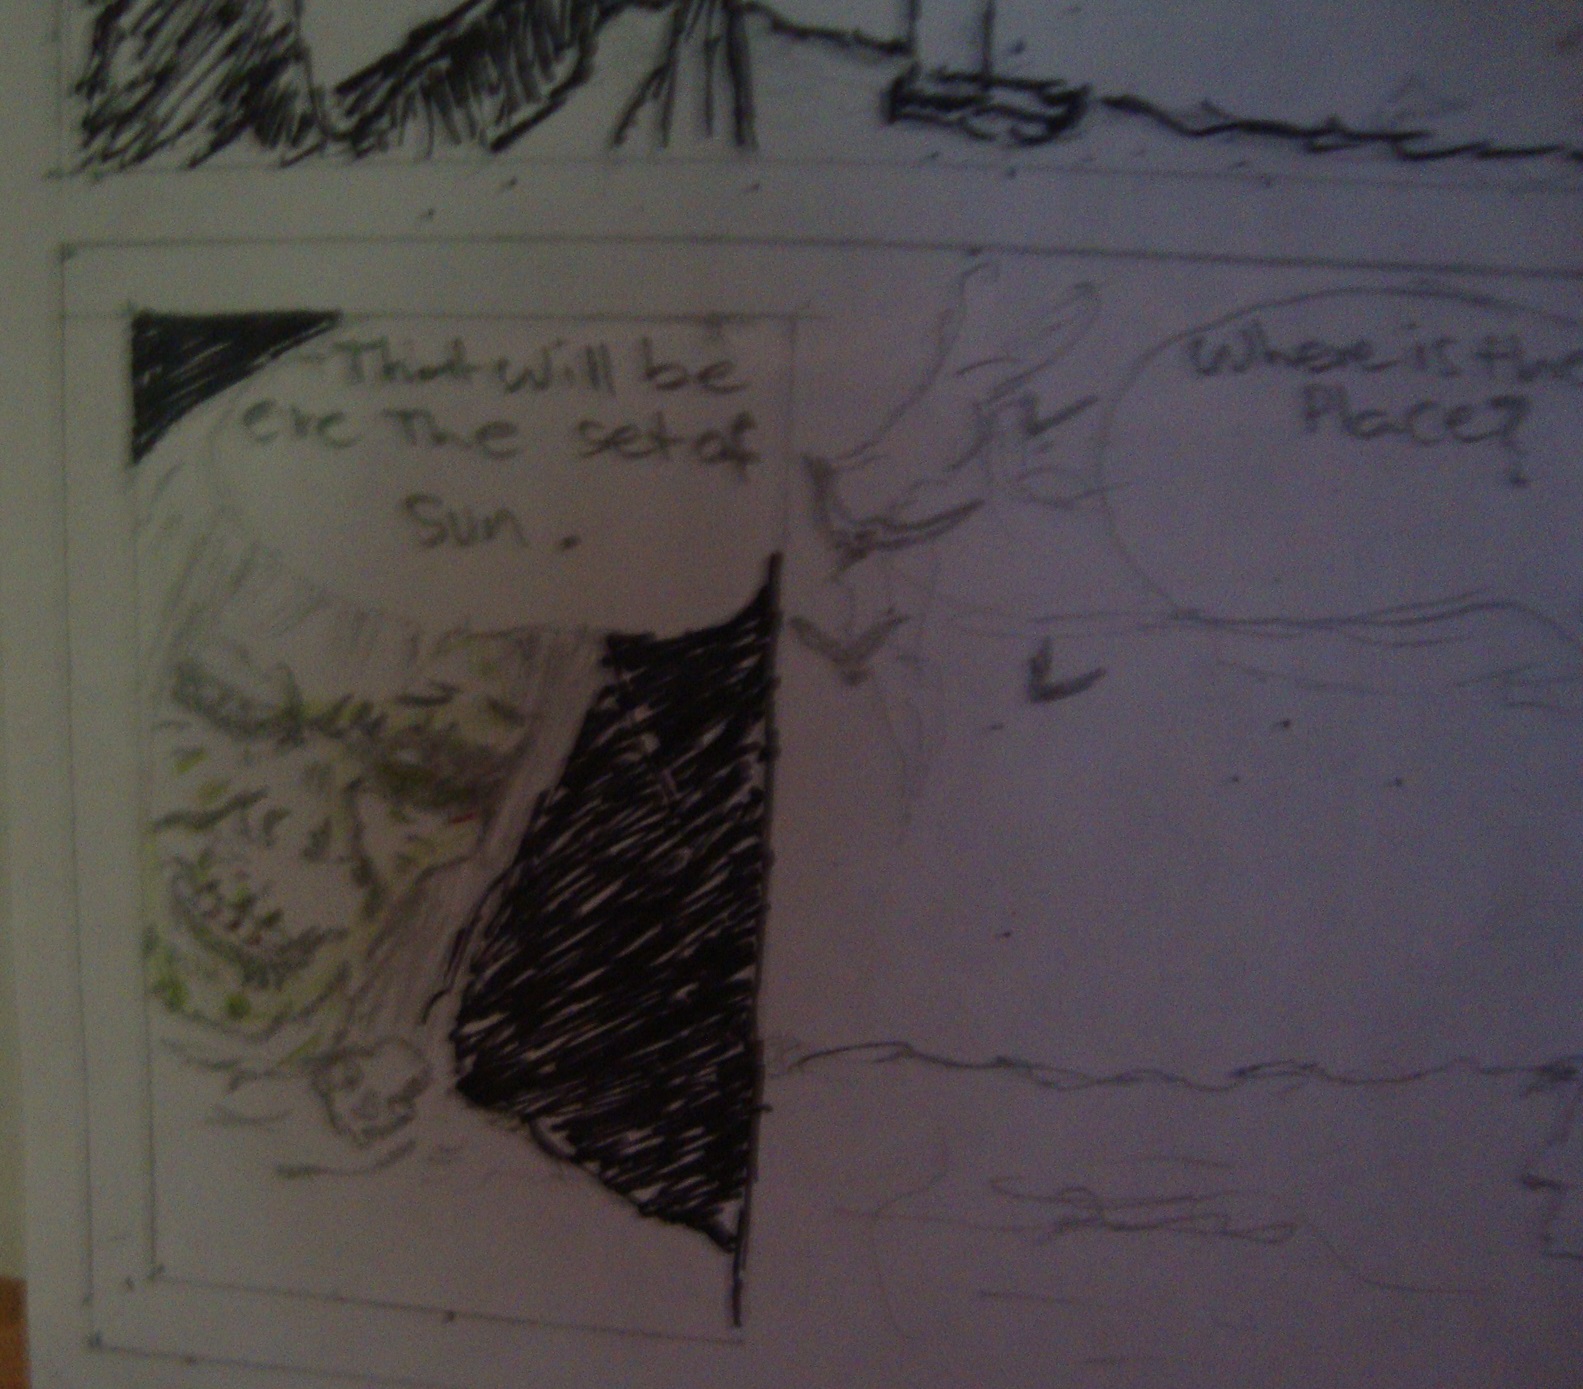 That will be
ere The set of
Sun.
Where is the
Place?